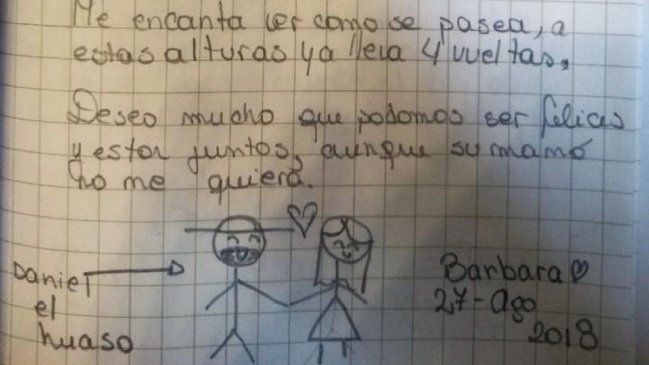 Me encanta ver como se pasea, a
estas alturas ya lleva 4 vueltas,
Deseo mucho que podamos ser felices
y estar juntos, aunque su mamá
no me quiera.
Daniel
el
huaso
Barbara
27-Ago
2018